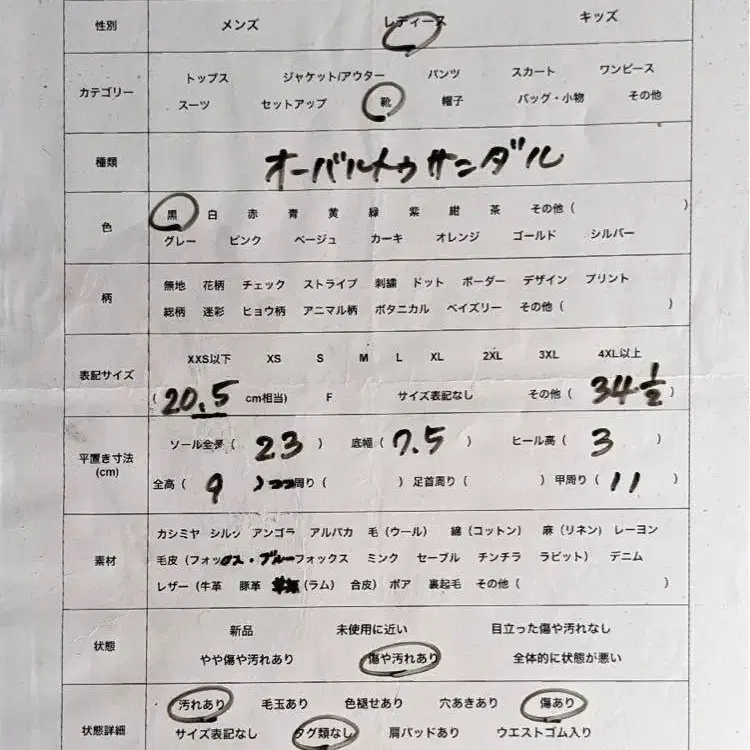 性別 メンズ レディース キッズ
カテゴリー
トップス ジャケット/アウター パンツ スカート ワンピース
スーツ セットアップ 靴 帽子 バッグ・小物 その他
種類 オーバルトゥサンダル
色
黒 白 赤 青 黄 緑 紫 紺 茶 その他 ( )
グレー ピンク ベージュ カーキ オレンジ ゴールド シルバー
柄
無地 花柄 チェック ストライプ 刺繍 ドット ボーダー デザイン プリント
総柄 迷彩 ヒョウ柄 アニマル柄 ボタニカル ペイズリー その他 ( )
表記サイズ
XXS以下 XS S M L XL 2XL 3XL 4XL以上
( 20.5 cm相当) F サイズ表記なし その他 ( 34 1/2 )
平置き寸法
(cm)
ソール全長 ( 23 ) 底幅 ( 7.5 ) ヒール高 ( 3 )
全高 ( 9 ) 周り ( ) 足首周り ( ) 甲周り ( 11 )
素材
カシミヤ シルク アンゴラ アルパカ 毛 (ウール) 綿 (コットン) 麻 (リネン) レーヨン
毛皮 (フォックス・ブルーフォックス ミンク セーブル チンチラ ラビット) デニム
レザー (牛革 豚革 (ラム) 合皮) ボア 裏起毛 その他 ( )
状態
新品 未使用に近い 目立った傷や汚れなし
やや傷や汚れあり 傷や汚れあり 全体的に状態が悪い
状態詳細
汚れあり 毛玉あり 色褪せあり 穴あきあり 傷あり
サイズ表記なし タグ類なし 肩パッドあり ウエストゴム入り